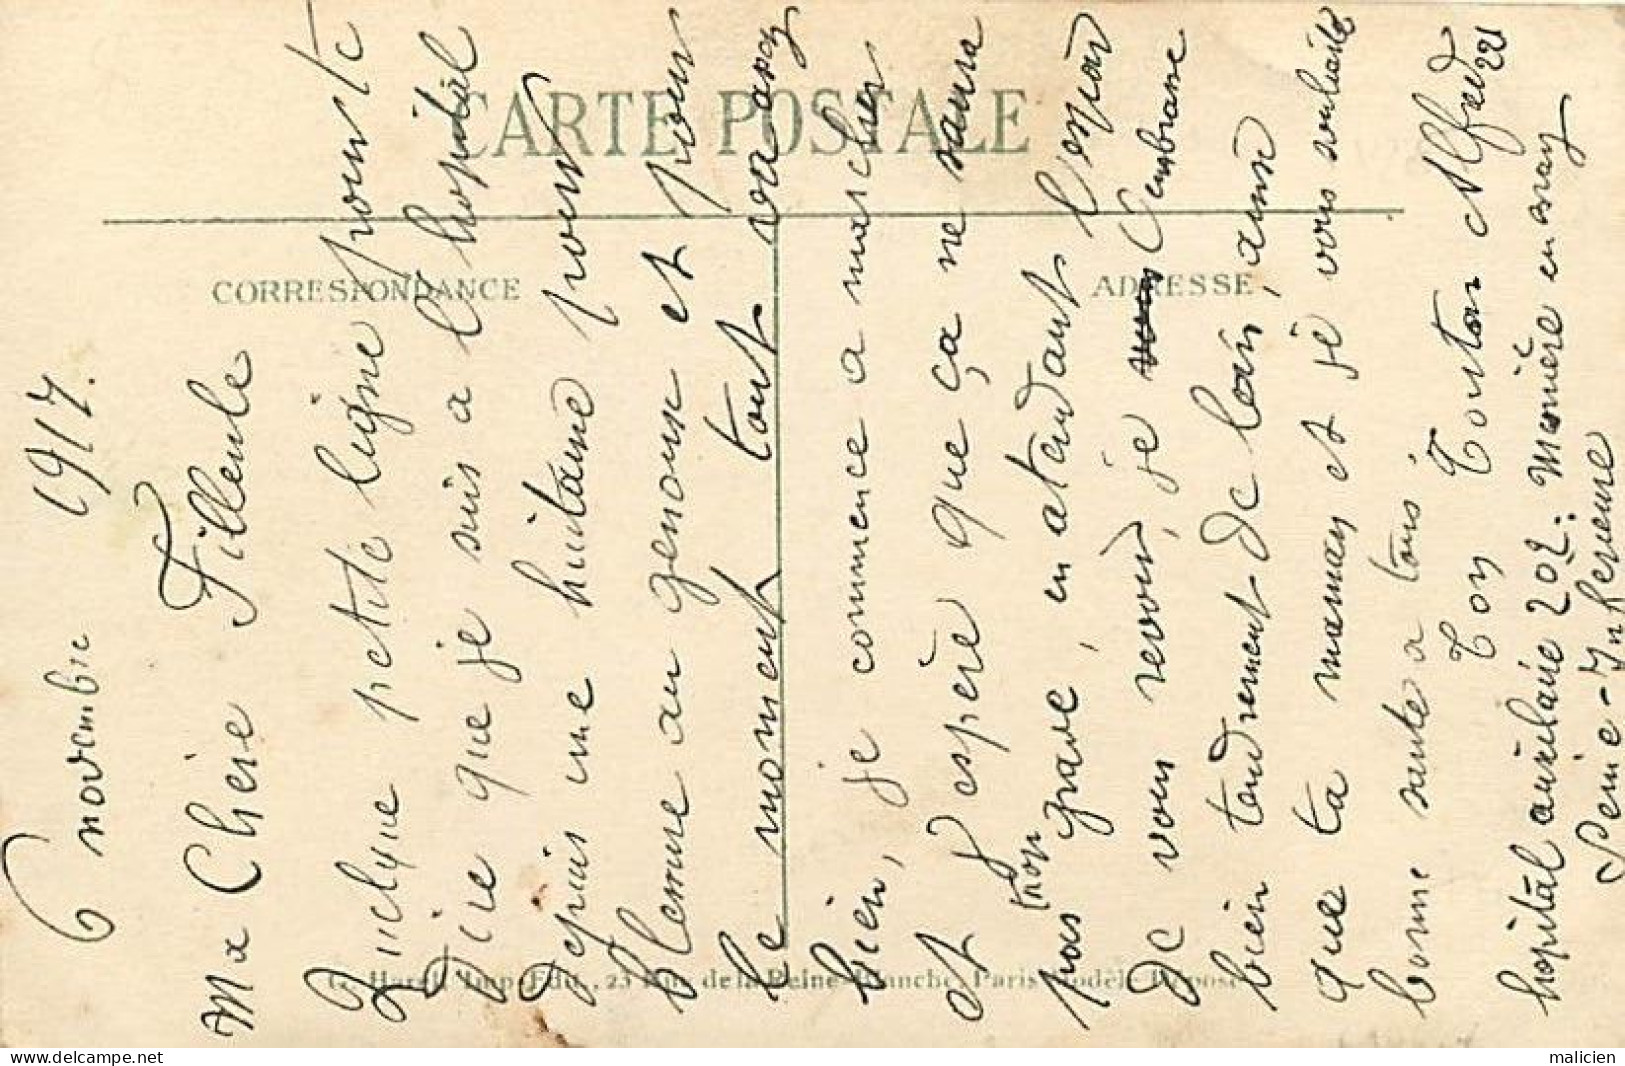 CARTE POSTALE
CORRESPONDANCE
ADRESSE
6 novembre 1917.
Ma Chère Filleule
Quelque petite ligne pour te
Dire que je suis a l'hopital
depuis une huitaine pour
blessure au genoux et pour
le moment tout va assez
bien, je commence a marcher
et j'espère que ça ne saura
pas trop grave, en atendant l'espoir
de vous revoir, je embrasse
bien tendrement de loin, ainsi
que ta maman et je vous souhaite
bonne sante a tous
Ton Tonton Alfred
hopital auxiliaire 202. en
Seine-Inferieure
Imp. Edit., 23 Rue de la Reine-Blanche, Paris Modèle Déposé
malicien
delcampe.net